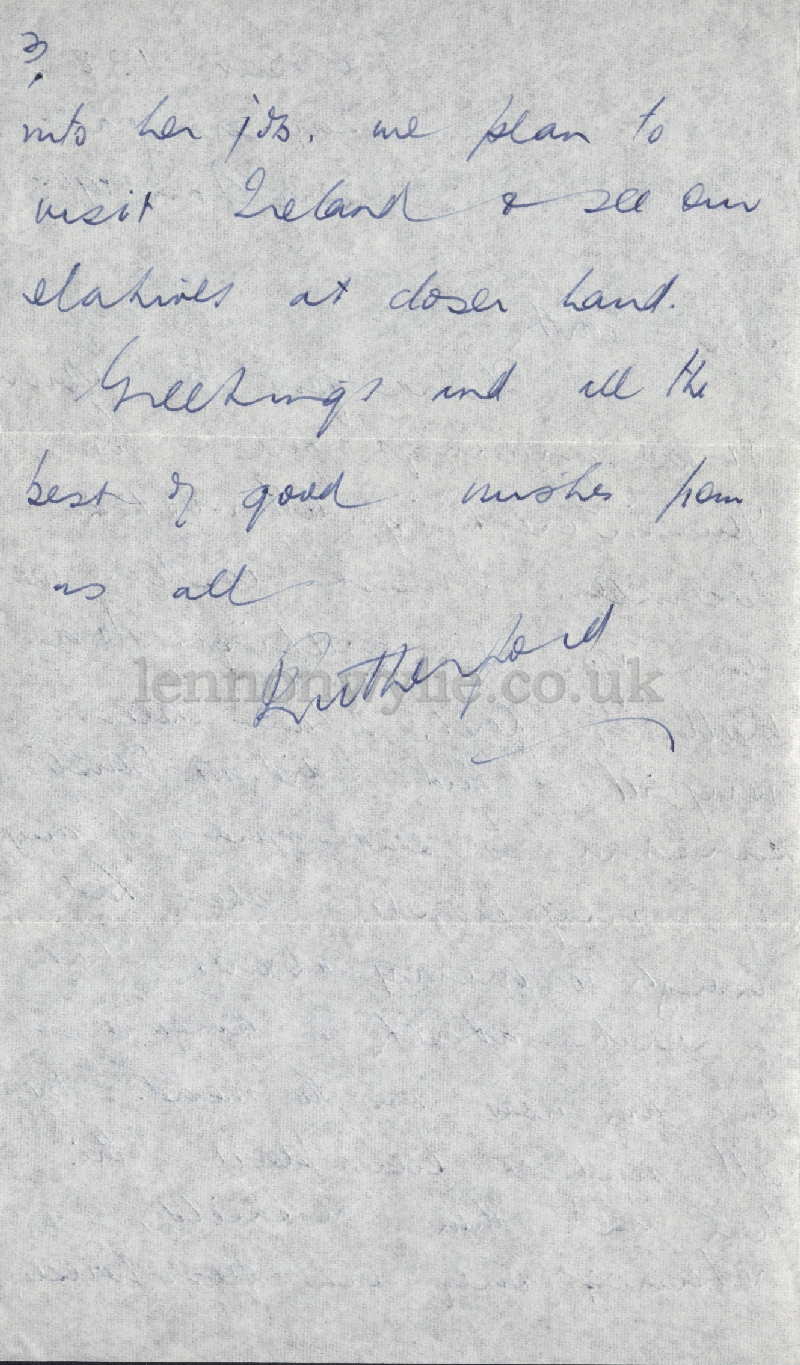 3.
into her job. we plan to
visit Ireland & see our
relatives at closer hand.
Greetings and all the
best of good wishes from
us all
Rutherford
lennonwylie.co.uk